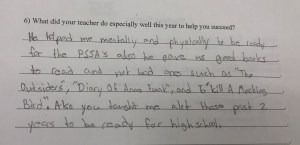 6) What did your teacher do especially well this year to help you succeed?
He helped me mentally and physically to be ready
for the PSSA's also he gave us good books
to read and not bad ones such as "The
Outsiders", "Diary Of Anne Frank", and To "Kill A Mocking
Bird". Also you taught me alot these past 2
years to be ready for highschool.